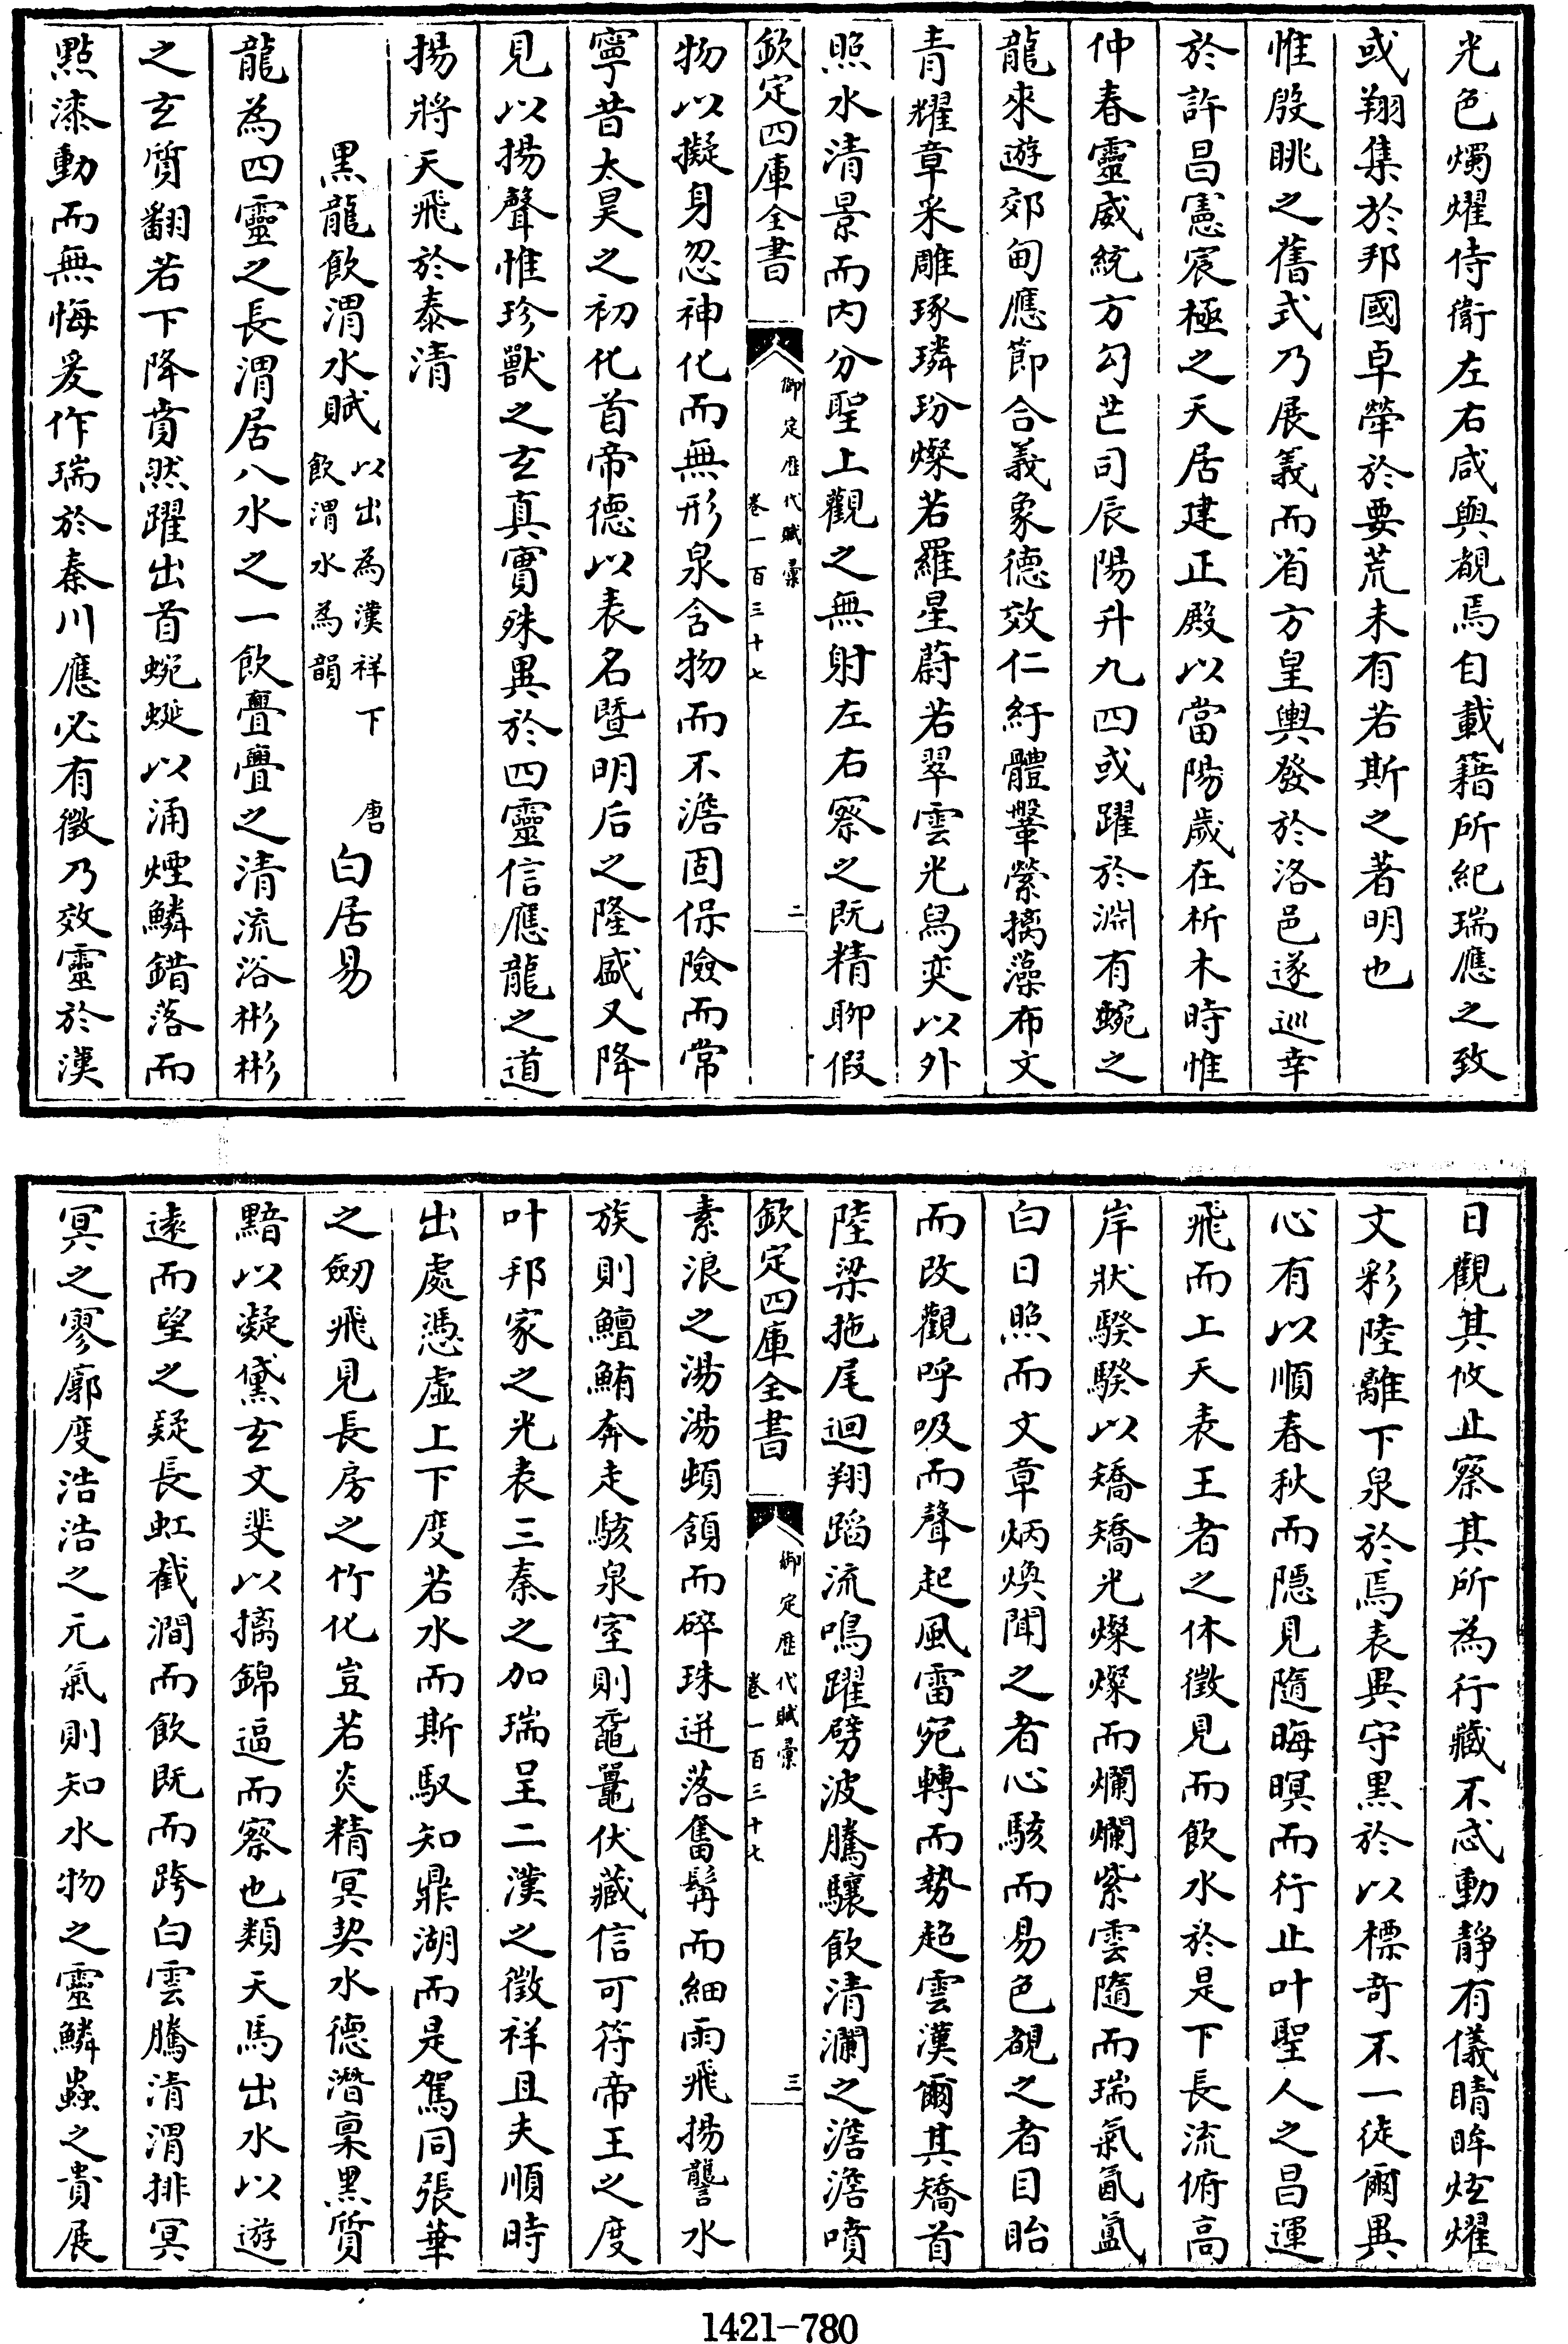 光色燭燿侍衛左右咸與覩焉自載籍所紀瑞應之致
或翔集於邦國卓犖於要荒未有若斯之著明也
惟殷眺之舊式乃展義而省方皇輿發於洛邑遂巡幸
於許昌憲宸極之天居建正殿以當陽歲在析木時惟
仲春靈威統方勾芒司辰陽升九四或躍於淵有蜿之
龍來遊郊甸應節合義象德效仁紆體鞶縈摛藻布文
青耀章采雕琢璘玢燦若羅星蔚若翠雲光舄奕以外
照水清景而內分聖上觀之無射左右察之既精聊假
欽定四庫全書
御定歷代賦彙
卷一百三十七
二
物以擬身忽神化而無形泉含物而不澹固保險而常
寧昔太昊之初化首帝德以表名暨明后之隆盛又降
見以揚聲惟珍獸之玄真實殊異於四靈信應龍之道
揚將天飛於泰清
黑龍飲渭水賦
以出為漢祥下
飲渭水為韻
唐
白居易
龍為四靈之長渭居八水之一飲亹亹之清流浴彬彬
之玄質翻若下降賁然躍出首蜿蜒以涌煙鱗錯落而
點漆動而無悔爰作瑞於秦川應必有徵乃效靈於漢
日觀其攸止察其所為行藏不忒動靜有儀睛眸炫燿
文彩陸離下泉於焉表異守黑於以標奇不一徒爾異
心有以順春秋而隱見隨晦暝而行止叶聖人之昌運
飛而上天表王者之休徵見而飲水於是下長流俯高
岸狀騤騤以矯矯光燦燦而爛爛紫雲隨而瑞氣氤氳
白日照而文章炳煥聞之者心駭而易色覩之者目眙
而改觀呼吸而聲起風雷宛轉而勢超雲漢爾其矯首
陸梁拖尾迴翔蹈流鳴躍劈波騰驤飲清瀾之澹澹噴
欽定四庫全書
御定歷代賦彙
卷一百三十七
三
素浪之湯湯頔頷而碎珠迸落奮髯而細雨飛揚讋水
族則鱣鮪奔走駭泉室則黿鼉伏藏信可符帝王之度
叶邦家之光表三秦之加瑞呈二漢之徵祥且夫順時
出處憑虛上下度若水而斯馭知鼎湖而是駕同張華
之劒飛見長房之竹化豈若炎精冥契水德潛稟黑質
黯以凝黛玄文斐以摛錦逼而察也類天馬出水以遊
遠而望之疑長虹截澗而飲既而跨白雲騰清渭排冥
冥之寥廓度浩浩之元氣則知水物之靈鱗蟲之貴展
1421-780